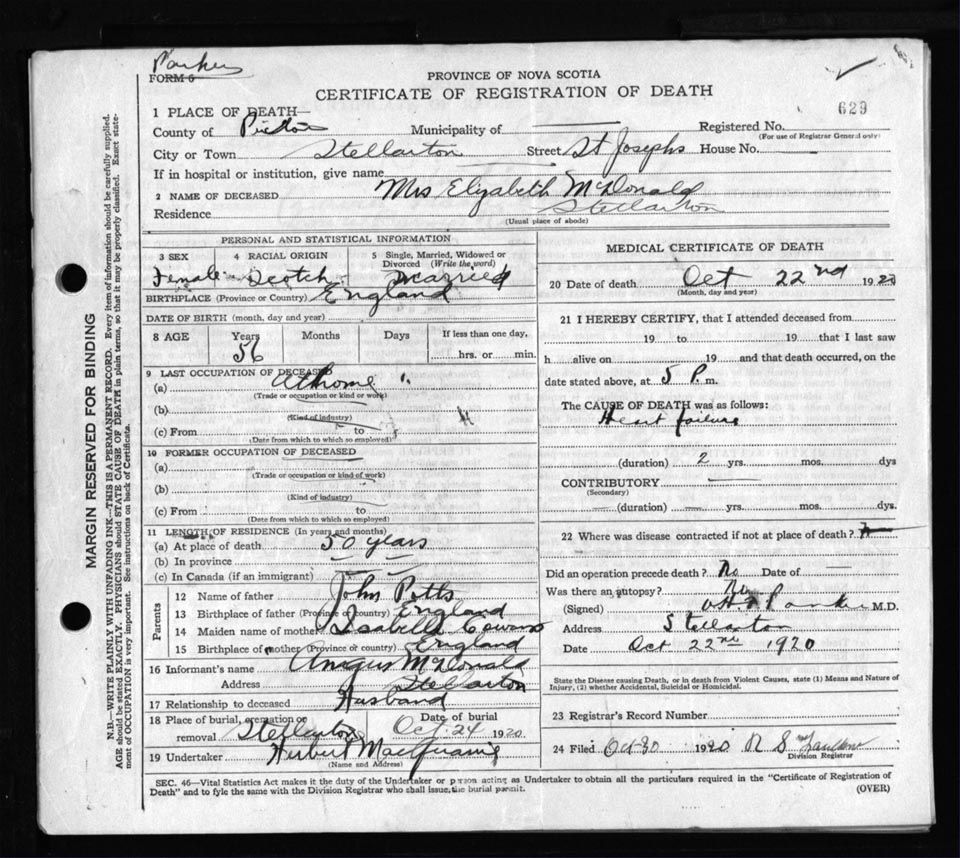 Parker
FORM 6
PROVINCE OF NOVA SCOTIA
CERTIFICATE OF REGISTRATION OF DEATH
629
1 PLACE OF DEATH—
County of Pictou Municipality of Registered No.
(For use of Registrar General only)
City or Town Stellarton Street St Josephs House No.
If in hospital or institution, give name
2 NAME OF DECEASED Mrs Elizabeth McDonald
Residence Stellarton
(Usual place of abode)
PERSONAL AND STATISTICAL INFORMATION
3 SEX 4 RACIAL ORIGIN 5 Single, Married, Widowed or Divorced (Write the word)
Female Scotch Married
BIRTHPLACE (Province or Country) England
DATE OF BIRTH (month, day and year)
8 AGE Years Months Days If less than one day,
56 hrs. or min.
9 LAST OCCUPATION OF DECEASED
(a) At home
(Trade or occupation or kind or work)
(b)
(Kind of industry)
(c) From to
(Date from which to which so employed)
10 FORMER OCCUPATION OF DECEASED
(a)
(Trade or occupation or kind of work)
(b)
(Kind of industry)
(c) From to
(Date from which to which so employed)
11 LENGTH OF RESIDENCE (In years and months)
(a) At place of death 50 years
(b) In province
(c) In Canada (if an immigrant)
Parents
12 Name of father John Potts
13 Birthplace of father (Province or country) England
14 Maiden name of mother Isabella Cowans
15 Birthplace of mother (Province or country) England
16 Informant's name Angus McDonald
Address Stellarton
17 Relationship to deceased Husband
18 Place of burial, cremation or removal Stellarton Date of burial Oct. 24 1920
19 Undertaker Herbert
(Name and Address)
MEDICAL CERTIFICATE OF DEATH
20 Date of death Oct 22nd 1920
(Month, day and year)
21 I HEREBY CERTIFY, that I attended deceased from
19 to 19 that I last saw
h alive on 19 and that death occurred, on the
date stated above, at 5 P. m.
The CAUSE OF DEATH was as follows:
Heart failure
(duration) 2 yrs. mos. dys
CONTRIBUTORY
(Secondary)
(duration) yrs. mos. dys.
22 Where was disease contracted if not at place of death?
Did an operation precede death? No Date of
Was there an autopsy? No
(Signed) Parker M.D.
Address Stellarton
Date Oct 22nd 1920
State the Disease causing Death, or in death from Violent Causes, state (1) Means and Nature of
Injury, (2) whether Accidental, Suicidal or Homicidal.
23 Registrar's Record Number
24 Filed Oct 30 1920 R S
Division Registrar
SEC. 46—Vital Statistics Act makes it the duty of the Undertaker or person acting as Undertaker to obtain all the particulars required in the "Certificate of Registration of
Death" and to fyle the same with the Division Registrar who shall issue the burial permit.
(OVER)
MARGIN RESERVED FOR BINDING
N.B.—WRITE PLAINLY WITH UNFADING INK—THIS IS A PERMANENT RECORD. Every item of information should be carefully supplied.
AGE should be stated EXACTLY. PHYSICIANS should STATE CAUSE OF DEATH in plain terms, so that it may be properly classified. Exact state-
ment of OCCUPATION is very important. See instructions on back of Certificate.